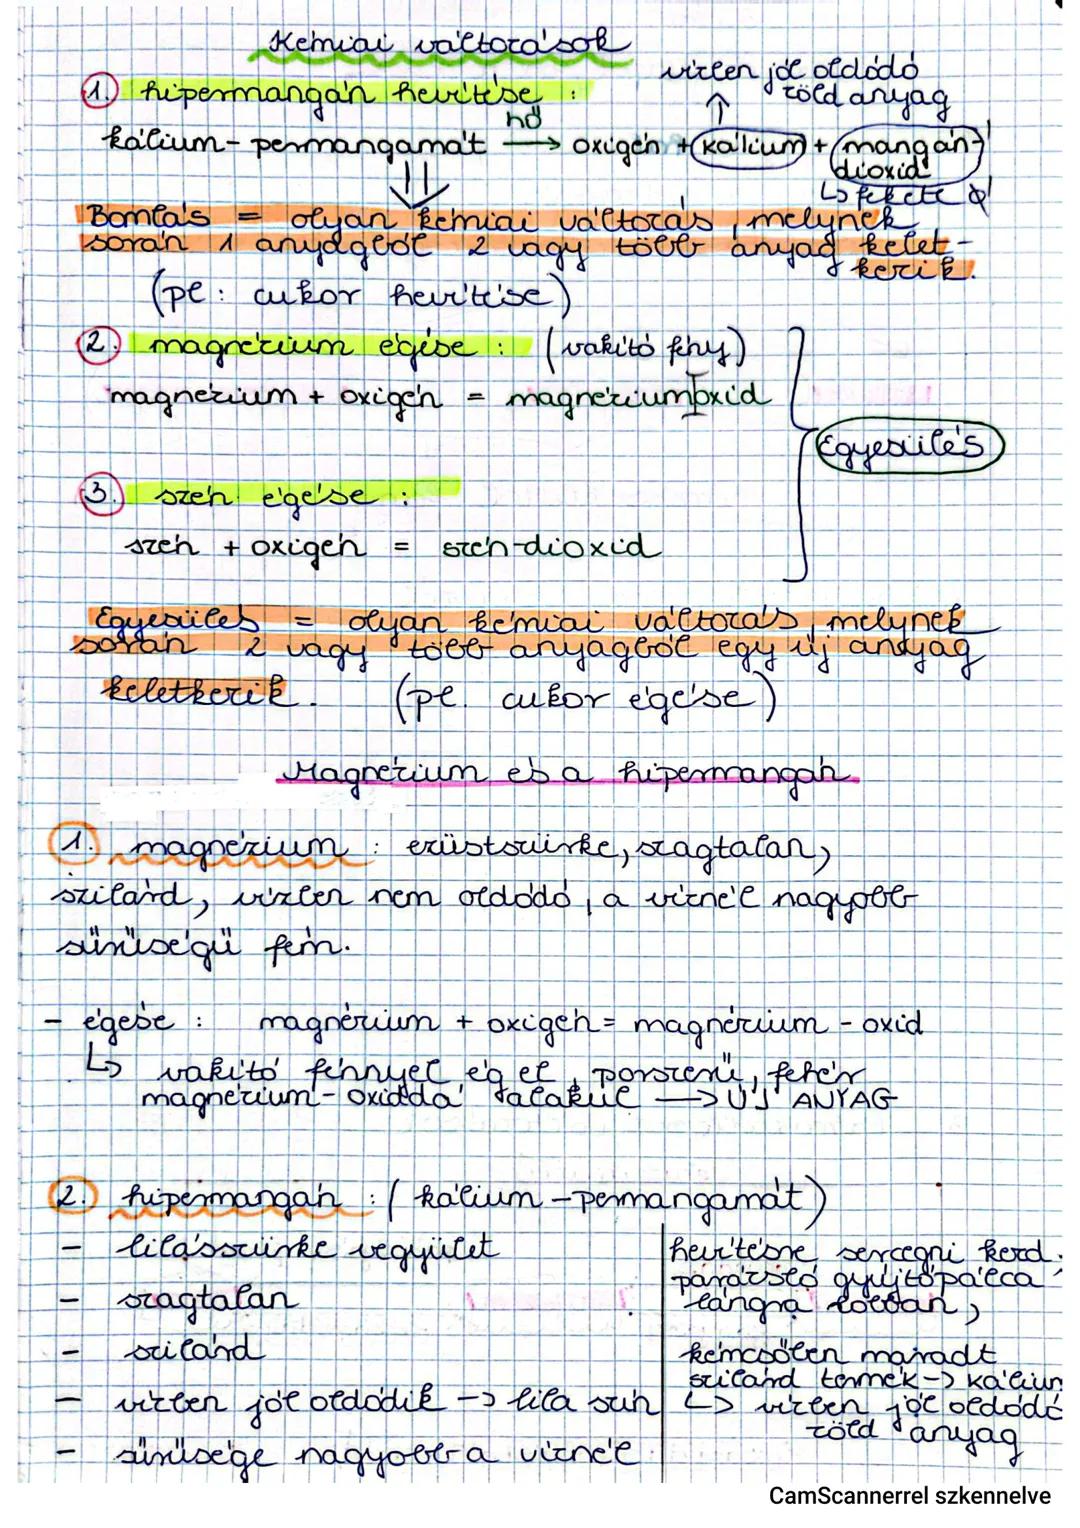 Kémiai változások
vízben jól oldódó
zöld anyag
1. hipermangán hevítése :
hő
kálium-permangamát → oxigén + kálium + mangán-
dioxid
↳ fekete
Bomlás = olyan kémiai változás, melynek
során 1 anyagból 2 vagy több anyag kelet-
kezik.
(pl: cukor hevítése)
2. magnézium égése : (vakító fény)
magnézium + oxigén = magnéziumoxid
Egyesülés
3. szén égése :
szén + oxigén = szén-dioxid
Egyesülés = olyan kémiai változás, melynek
során 2 vagy több anyagból egy új anyag
keletkezik. (pl. cukor égése)
Magnézium és a hipermangán
1. magnézium : ezüstszürke, szagtalan,
szilárd, vízben nem oldódó, a víznél nagyobb
sűrűségű fém.
- égése : magnézium + oxigén = magnézium - oxid
↳ vakító fénnyel ég el, porszerű, fehér
magnézium-oxiddá alakul → ÚJ ANYAG
2. hipermangán : (kálium-permangamát)
- lilásszürke vegyület
- szagtalan
- szilárd
- vízben jól oldódik → lila szín
- sűrűsége nagyobb a víznél
hevítésre sercegni kezd.
parázsló gyújtópálca
lángra lobban,
kémcsőben maradt
szilárd termék → kálium
↳ vízben jól oldódó
zöld anyag
CamScannerrel szkennelve